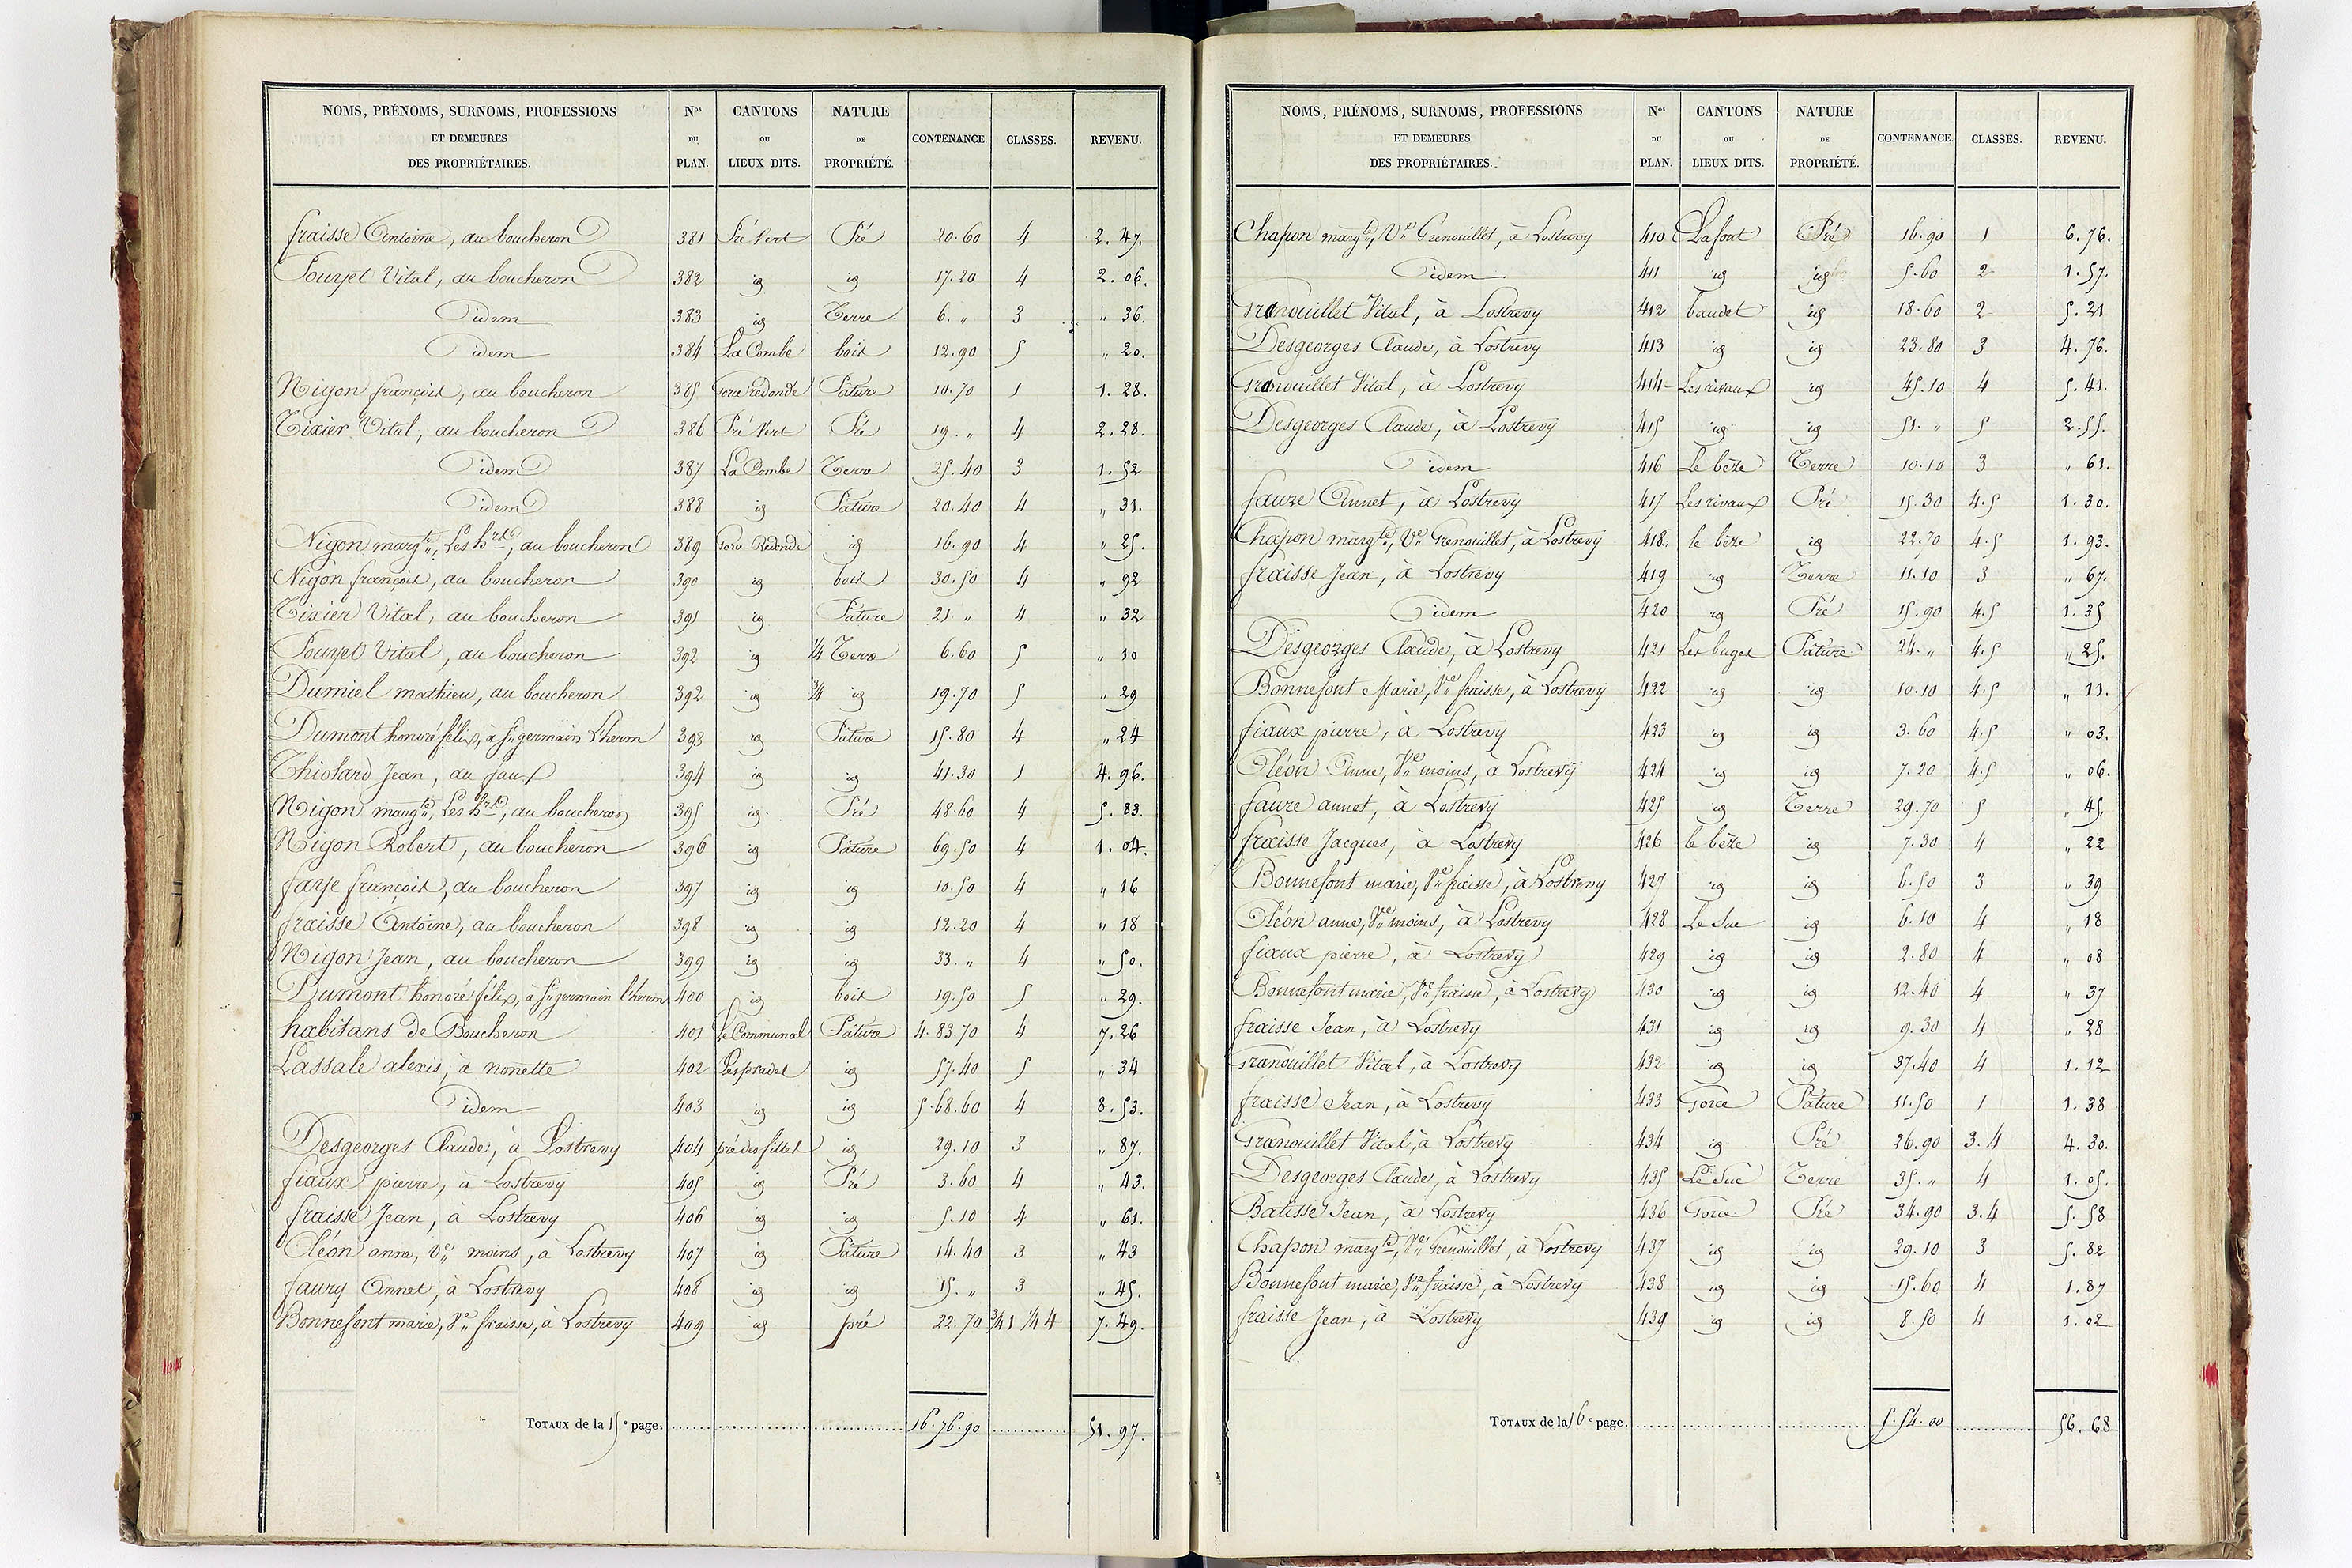 NOMS, PRÉNOMS, SURNOMS, PROFESSIONS ET DEMEURES DES PROPRIÉTAIRES. Nos DU PLAN. CANTONS OU LIEUX DITS. NATURE DE PROPRIÉTÉ. CONTENANCE. CLASSES. REVENU.
fraisse Antoine, au boucheron 381 Pré Vert Pré 20.60 4 2.47.
Pouyet Vital, au boucheron 382 id id 17.20 4 2.06.
idem 383 id Terre 6. „ 3 „ 36.
idem 384 La Combe bois 12.90 5 „ 20.
Nigon françois, au boucheron 385 redonde Pature 10.70 1 1.28.
Tixier Vital, au boucheron 386 Pré Vert Pré 19. „ 4 2.28.
idem 387 La Combe Terre 25.40 3 1.52
idem 388 id Pature 20.40 4 „ 31.
Nigon margte, Les hers, au boucheron 389 Redonde id 16.90 4 „ 25.
Nigon françois, au boucheron 390 id bois 30.50 4 „ 92
Tixier Vital, au boucheron 391 id Pature 21 „ 4 „ 32
Pouyet Vital, au boucheron 392 id 1/4 Terre 6.60 5 „ 10
Dumiel mathieu, au boucheron 392 id 3/4 id 19.70 5 „ 29
Dumont honoré félix, à St germain L'herm 393 id Pature 15.80 4 „ 24
Thiolard Jean, au faux 394 id id 41.30 1 4.96.
Nigon margte, Les hers, au boucheron 395 id Pré 48.60 4 5.83.
Nigon Robert, au boucheron 396 id Pature 69.50 4 1.04.
faye françois, au boucheron 397 id id 10.50 4 „ 16
fraisse Antoine, au boucheron 398 id id 12.20 4 „ 18
Nigon Jean, au boucheron 399 id id 33. „ 4 „ 50.
Dumont honoré félix, à St germain l'herm 400 id bois 19.50 5 „ 29.
habitans de Boucheron 401 Le Communal Pature 4.83.70 4 7.26
Lassale alexis, à nonette 402 Les prades id 57.40 5 „ 34
idem 403 id id 5.68.60 4 8.53.
Desgeorges Claude, à Lostrevy 404 pré des filles id 29.10 3 „ 87.
fiaux pierre, à Lostrevy 405 id Pré 3.60 4 „ 43.
fraisse Jean, à Lostrevy 406 id id 5.10 4 „ 61.
Oléon anne, Ve moins, à Lostrevy 407 id Pature 14.40 3 „ 43
faury Annet, à Lostrevy 408 id id 15. „ 3 „ 45.
Bonnefont marie, Ve fraisse, à Lostrevy 409 id pré 22.70 3/4 1 1/4 4 7.49.
TOTAUX de la 15e page. 16.76.90 51.97.
NOMS, PRÉNOMS, SURNOMS, PROFESSIONS ET DEMEURES DES PROPRIÉTAIRES. Nos DU PLAN. CANTONS OU LIEUX DITS. NATURE DE PROPRIÉTÉ. CONTENANCE. CLASSES. REVENU.
Chapon margte, Ve Grenouillet, à Lostrevy 410 Lafont Pré 16.90 1 6.76.
idem 411 id id 5.60 2 1.57.
Granouillet Vital, à Lostrevy 412 baudet id 18.60 2 5.21
Desgeorges Claude, à Lostrevy 413 id id 23.80 3 4.76.
Granouillet Vital, à Lostrevy 414 Les rivaux id 45.10 4 5.41.
Desgeorges Claude, à Lostrevy 415 id id 51. „ 5 2.55.
idem 416 Le bèze Terre 10.10 3 „ 61.
faure Annet, à Lostrevy 417 Les rivaux Pré 15.30 4.5 1.30.
Chapon margte, Ve Grenouillet, à Lostrevy 418. le bèze id 22.70 4.5 1.93.
fraisse Jean, à Lostrevy 419 id Terre 11.10 3 „ 67.
idem 420 id Pré 15.90 4.5 1.35
Desgeorges Claude, à Lostrevy 421 Les buges Pature 24. „ 4.5 „ 25.
Bonnefont Marie, Ve fraisse, à Lostrevy 422 id id 10.10 4.5 „ 11.
fiaux pierre, à Lostrevy 423 id id 3.60 4.5 „ 03.
Oléon Anne, Ve moins, à Lostrevy 424 id id 7.20 4.5 „ 06.
faure annet, à Lostrevy 425 id Terre 29.70 5 „ 45.
fraisse Jacques, à Lostrevy 426 le bèze id 7.30 4 „ 22
Bonnefont marie, Ve fraisse, à Lostrevy 427 id id 6.50 3 „ 39
Oléon anne, Ve moins, à Lostrevy 428 Le Suc id 6.10 4 „ 18
fiaux pierre, à Lostrevy 429 id id 2.80 4 „ 08
Bonnefont marie, Ve fraisse, à Lostrevy 430 id id 12.40 4 „ 37
fraisse Jean, à Lostrevy 431 id id 9.30 4 „ 28
Granouillet Vital, à Lostrevy 432 id id 37.40 4 1.12
fraisse Jean, à Lostrevy 433 Gorce Pature 11.50 1 1.38
Granouillet Vital, à Lostrevy 434 id Pré 26.90 3.4 4.30.
Desgeorges Claude, à Lostrevy 435 Le Suc Terre 35. „ 4 1.05.
Batisse Jean, à Lostrevy 436 Gorce Pré 34.90 3.4 5.58
Chapon margte, Ve Grenouillet, à Lostrevy 437 id id 29.10 3 5.82
Bonnefont marie, Ve fraisse, à Lostrevy 438 id id 15.60 4 1.87
fraisse Jean, à Lostrevy 439 id id 8.50 4 1.02
TOTAUX de la 16e page. 5.54.00 56.68